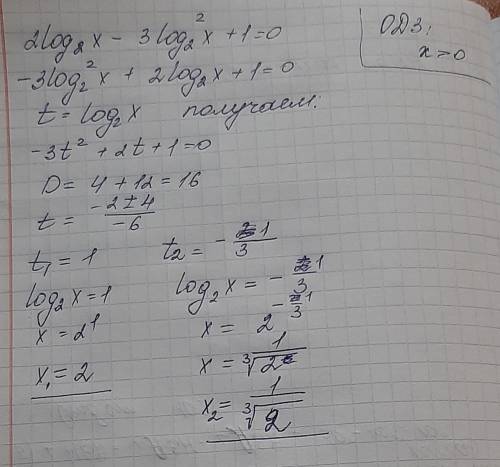 2log₂x - 3log₂²x + 1 = 0
ОДЗ:
x > 0
-3log₂²x + 2log₂x + 1 = 0
t = log₂x получаем:
-3t² + 2t + 1 = 0
D = 4 + 12 = 16
t = (-2 ± 4)/(-6)
t₁ = 1
log₂x = 1
x = 2¹
x₁ = 2
t₂ = -1/3
log₂x = -1/3
x = 2^(-1/3)
x = 1/∛2
x₂ = 1/∛2